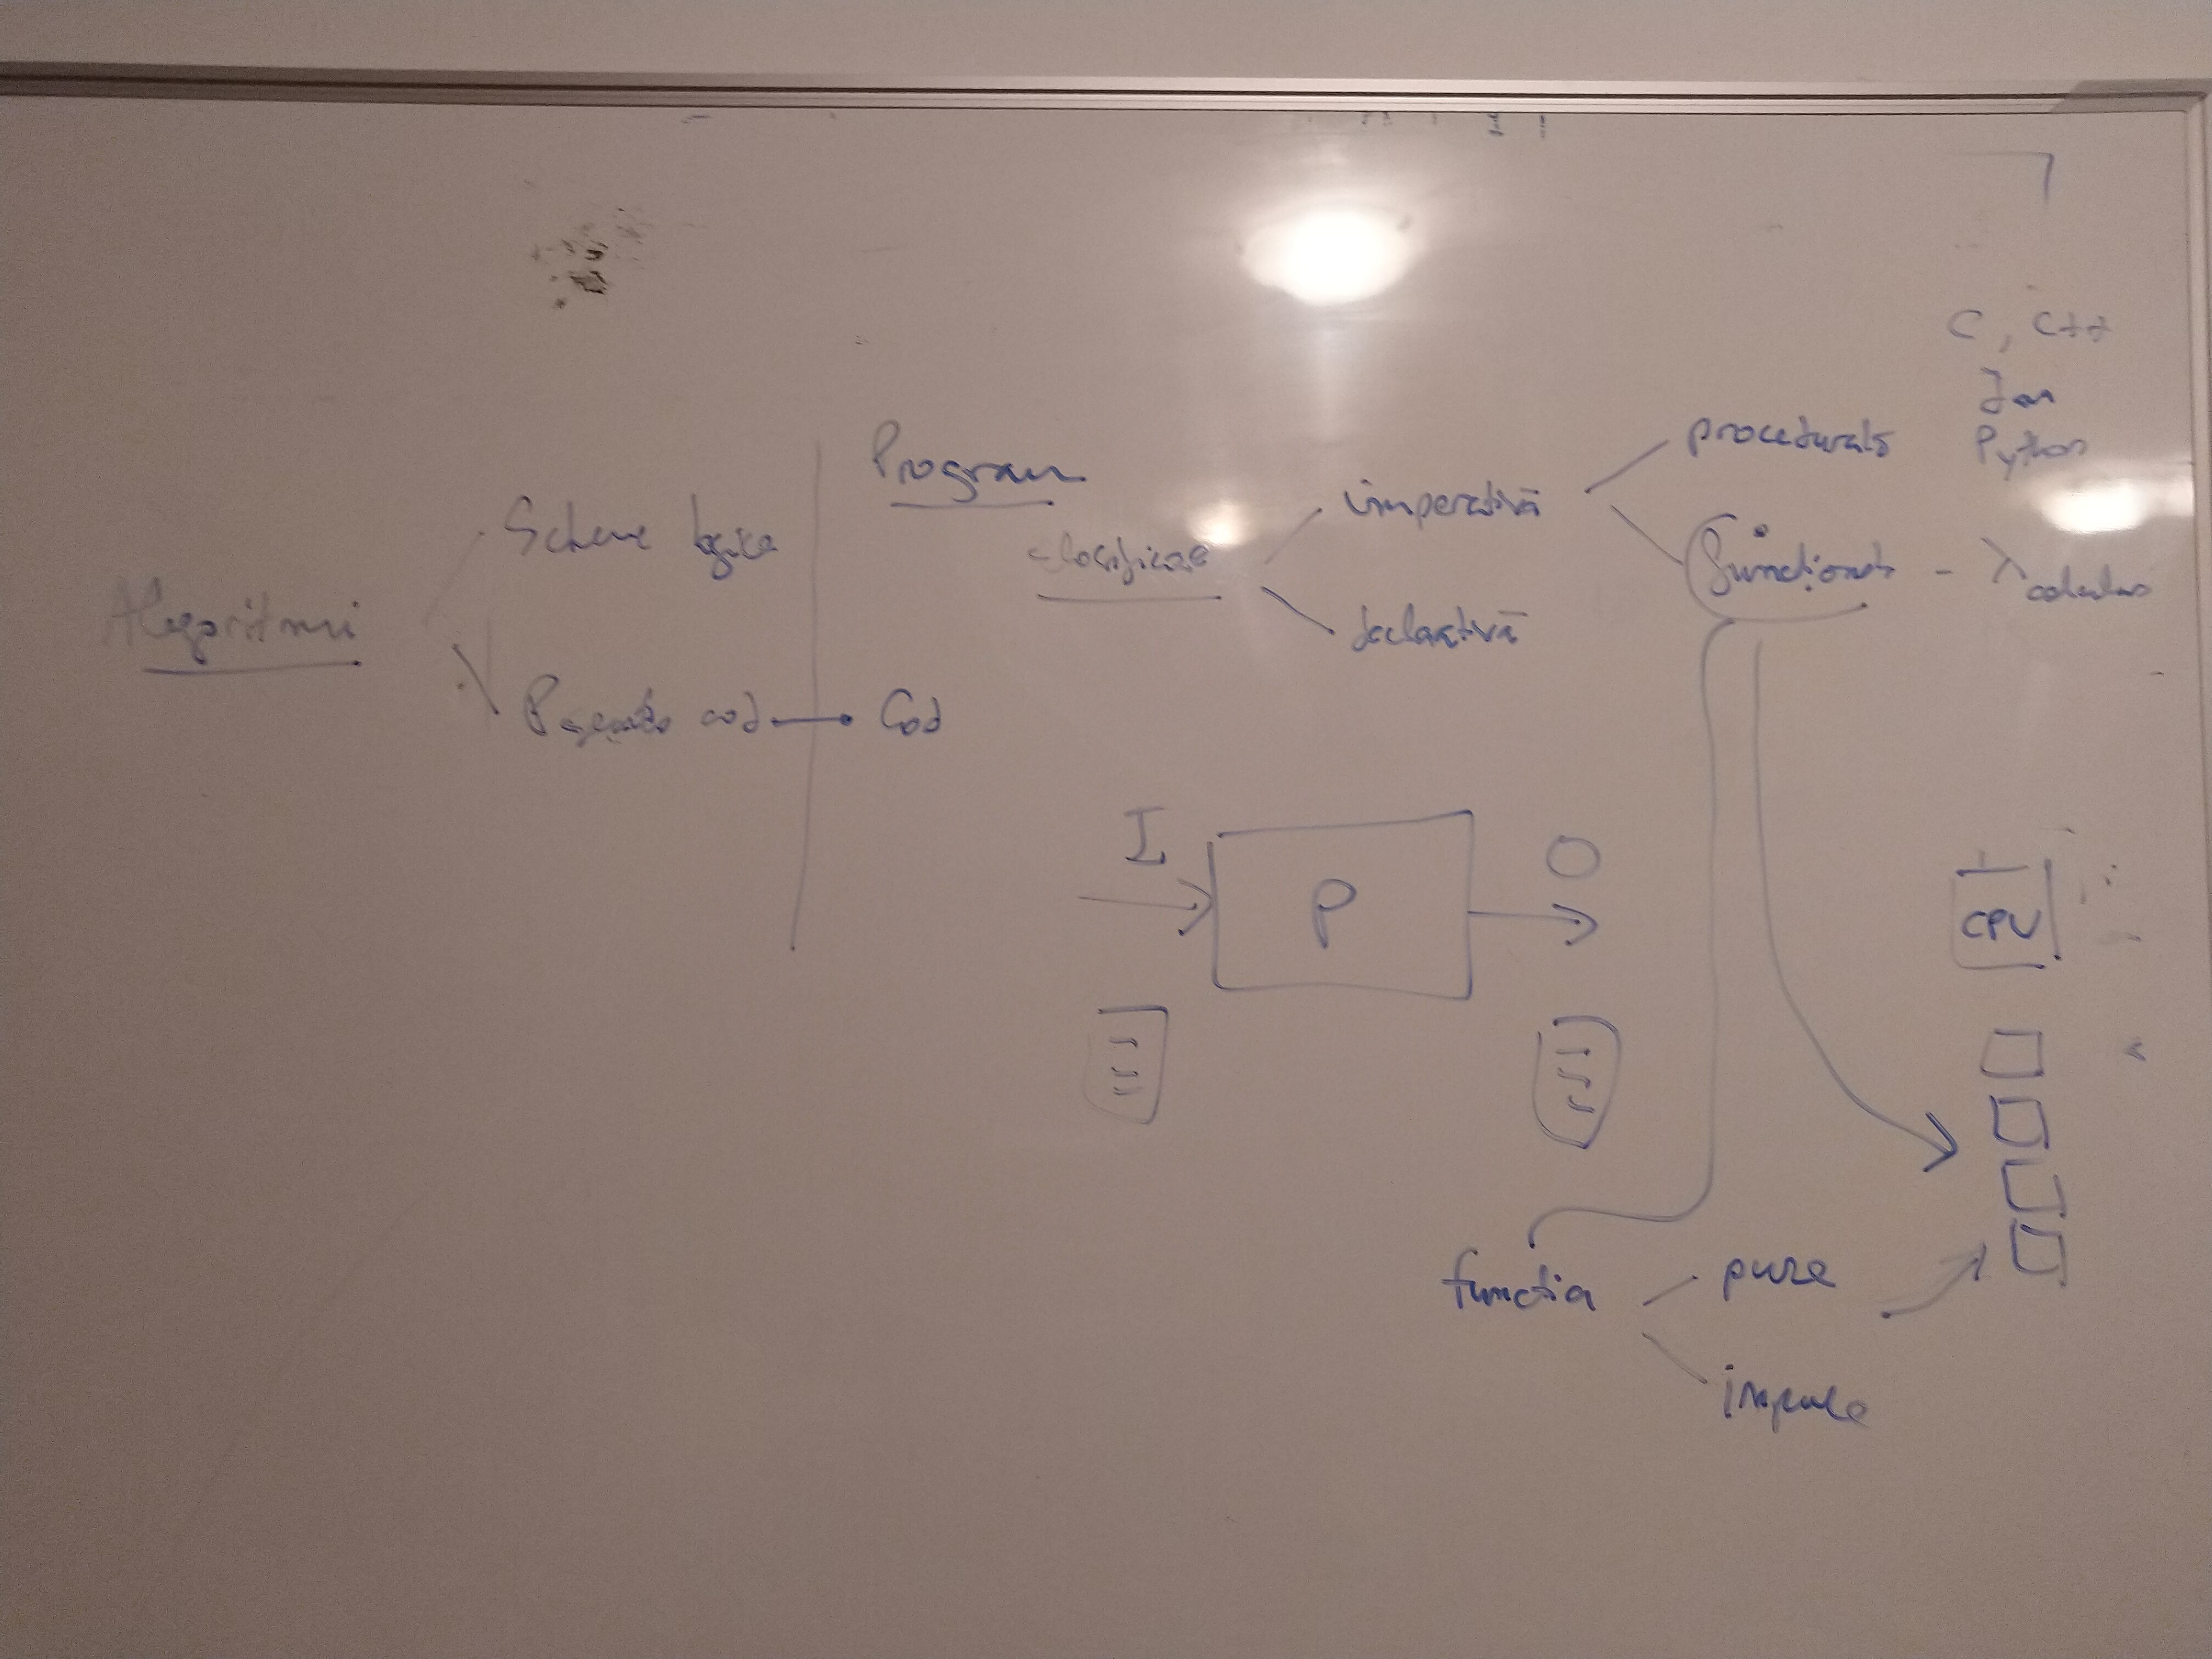 Algoritmi
Scheme logice
Pseudo cod
Cod
Program
clasificare
imperativă
declarativă
procedurală
funcțională - λ calculus
C, C++
Java
Python
I
P
O
CPU
functia
pure
impure